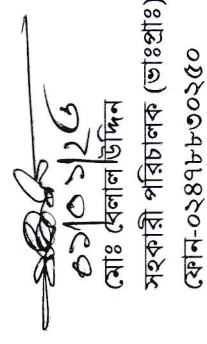 ০১/০১/২৬
মোঃ বেলাল উদ্দিন
সহকারী পরিচালক (ভাঃপ্রাঃ)
ফোন-০২৪৭৮৮৩০২৫০